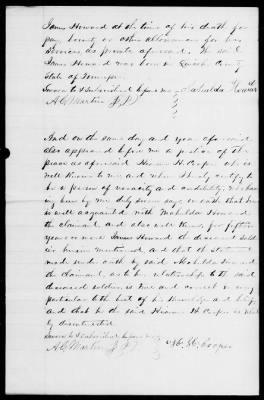 James Howard at the time of his death for
pay bounty or other allowance for his
services as private aforesaid. The said
James Howard was born in County
State of Tennessee.
Sworn to & Subscribed before me Mahulda Howard
A. C. Martin J.P.
And on the same day and year aforesaid
also appeared before me a justice of the
peace as aforesaid Hiram H. Cooper who is
well known to me and whom I hereby certify to
be a person of veracity and credibility, who having
been by me duly sworn says on oath that he
is well acquainted with Mahulda Howard
the claimant, and also well knew, for fifteen
years or more James Howard the deceased soldier
herein mentioned and that the statement
made under oath by said Mahulda Howard
the claimant, as to her relationship to the said
deceased soldier is true and correct in every
particular to the best of his knowledge and belief
and that he the said Hiram H. Cooper is
disinterested
Sworn to & Subscribed before me
A. C. Martin J.P. H. H. Cooper